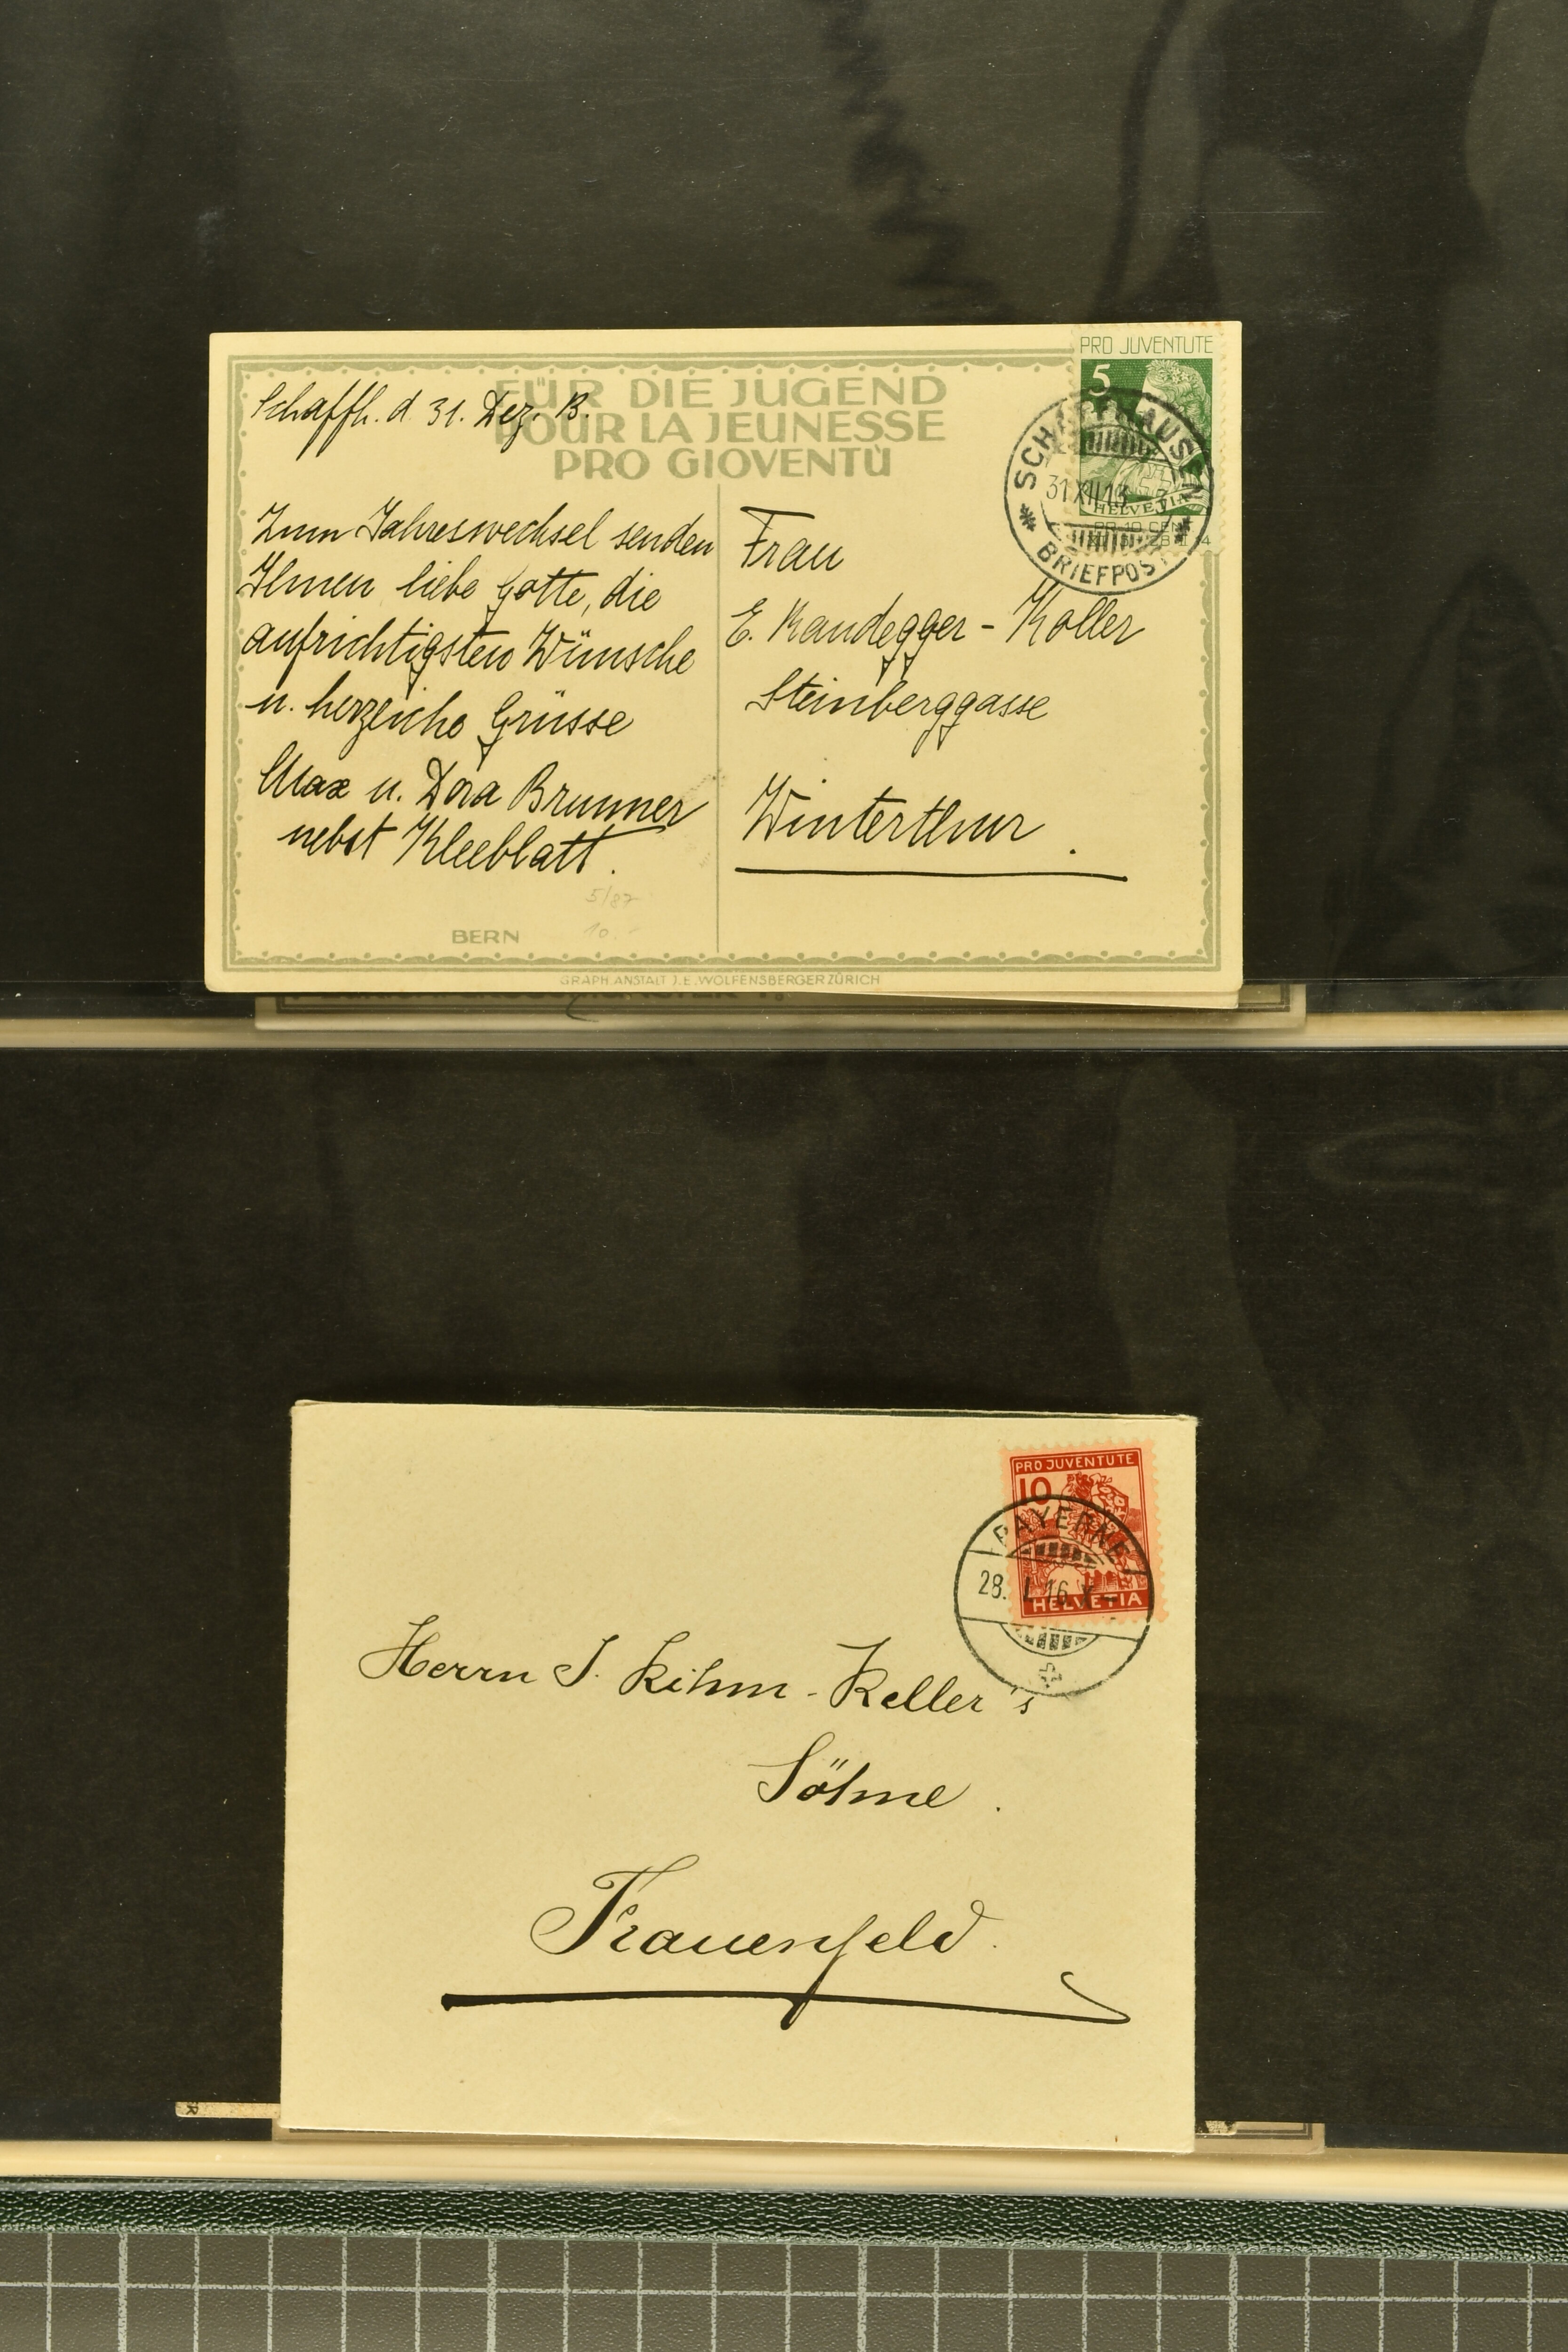 PRO JUVENTUTE
5
HELVETIA
SCHAFFHAUSEN
31.XII.13
BRIEFPOST
FÜR DIE JUGEND
POUR LA JEUNESSE
PRO GIOVENTÙ
Schaffh. d. 31. Dez. 13.
Zum Jahreswechsel senden
Ihnen liebe Gotte, die
aufrichtigsten Wünsche
u. herzliche Grüsse
Max u. Dora Brunner
nebst Kleeblatt.
Frau
E. Randegger - Koller
Steinberggasse
Winterthur.
5/87
10.-
BERN
GRAPH. ANSTALT J.E. WOLFENSBERGER ZÜRICH
PRO JUVENTUTE
10
HELVETIA
PAYERNE
28. I. 16. X-
Herrn J. Kihm-Keller's
Söhne.
Frauenfeld.